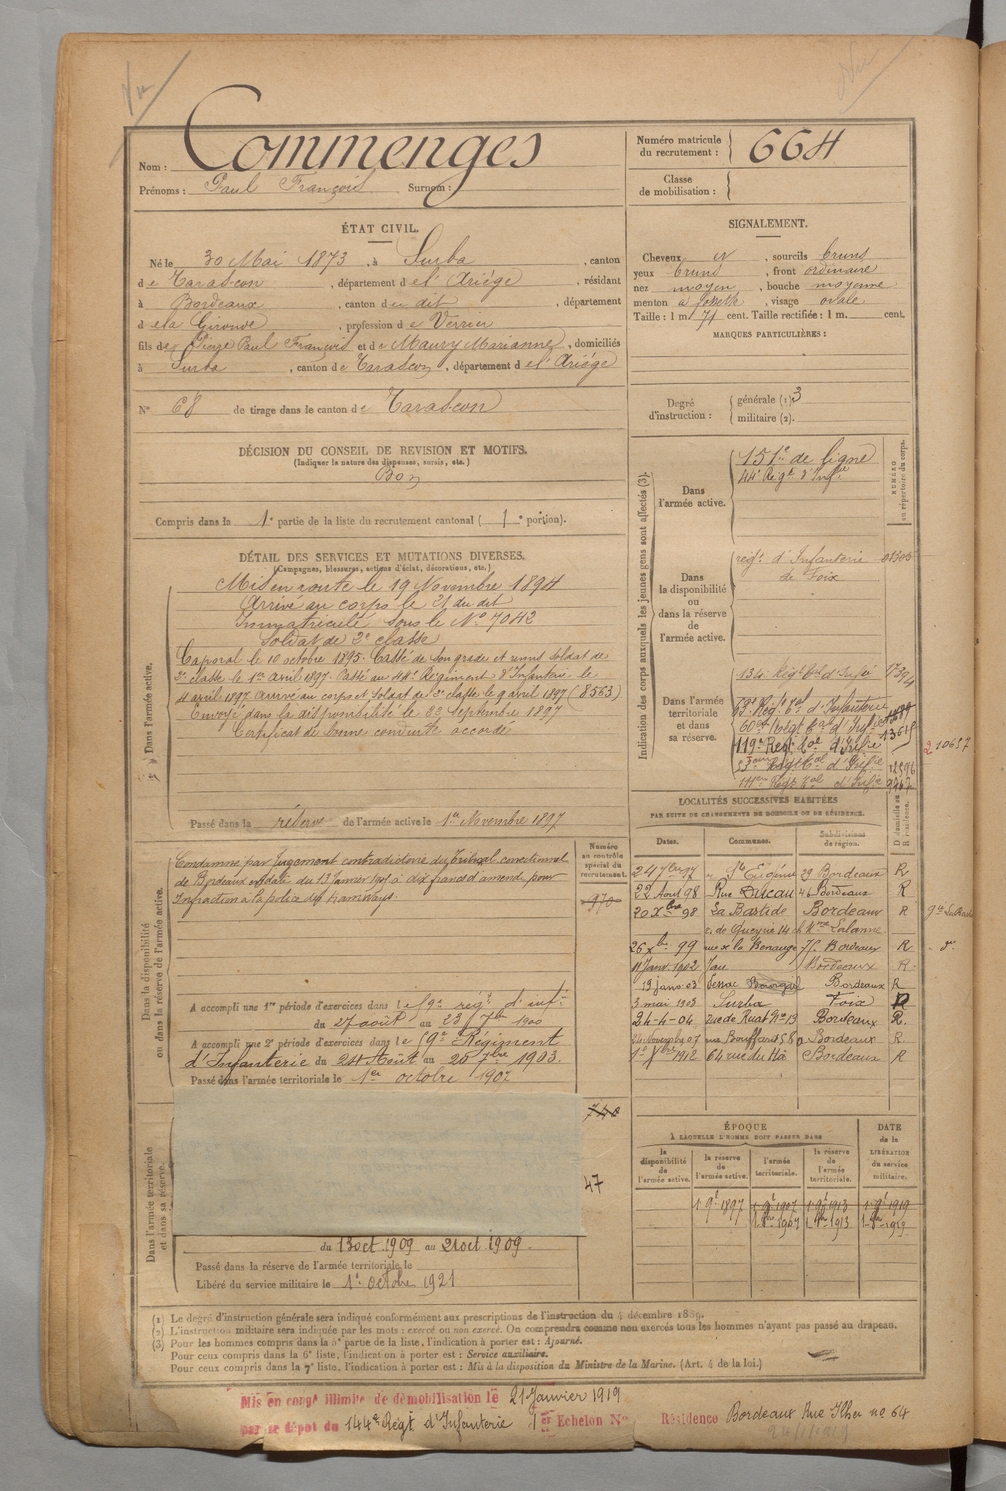 Nom : Commenges
Prénoms : Paul François Surnom :
Numéro matricule du recrutement : 664
Classe de mobilisation :
ÉTAT CIVIL.
Né le 30 Mai 1873, à Surba, canton
de Tarascon, département de l'Ariège, résidant
à Bordeaux, canton de dit, département
de la Gironde, profession de Verrier
fils de Pierre Paul François et de Maury Marianne, domiciliés
à Surba, canton de Tarascon, département de l'Ariège
N° 68 de tirage dans le canton de Tarascon
SIGNALEMENT.
Cheveux N, sourcils bruns
yeux bruns, front ordinaire
nez moyen, bouche moyenne
menton à fossette, visage ovale
Taille : 1 m. 71 cent. Taille rectifiée : 1 m. cent.
MARQUES PARTICULIÈRES :
Degré d'instruction : générale (1). 3
militaire (2).
DÉCISION DU CONSEIL DE REVISION ET MOTIFS.
(Indiquer la nature des dispenses, sursis, etc.)
Bon
Compris dans la 1e partie de la liste du recrutement cantonal ( 1 e portion).
DÉTAIL DES SERVICES ET MUTATIONS DIVERSES.
(Campagnes, blessures, actions d'éclat, décorations, etc.)
Dans l'armée active.
Mis en route le 19 Novembre 1894
Arrivé au corps le 21 du dit
Immatriculé sous le N° 7042
Soldat de 2e classe
Caporal le 10 octobre 1895. Cassé de son grade et remis soldat de
2e classe le 1er avril 1897. Passé au 44e Régiment d'Infanterie le
4 avril 1897 arrivé au corps et soldat de 2e classe le 9 avril 1897 (8563)
Envoyé dans la disponibilité le 22 Septembre 1897
Certificat de bonne conduite accordé
Passé dans la réserve de l'armée active le 1er Novembre 1897
Dans la disponibilité ou dans la réserve de l'armée active.
Numéro au contrôle spécial du recrutement.
970
Condamné par Jugement contradictoire du Tribunal correctionnel
de Bordeaux en date du 13 Janvier à dix francs d'amende pour
Infraction à la police des tramways.
A accompli une 1re période d'exercices dans le 9e régt d'inf
du 27 août au 23 7bre 1900
A accompli une 2e période d'exercices dans le 9e Régiment
d'Infanterie du 24 Août au 20 7bre 1903.
Passé dans l'armée territoriale le 1er octobre 1907
Dans l'armée territoriale et dans sa réserve.
47
du 13 oct. 1909 au 21 oct. 1909
Passé dans la réserve de l'armée territoriale le
Libéré du service militaire le 1er octobre 1921
Indication des corps auxquels les jeunes gens sont affectés (3).
NUMÉRO au répertoire du corps.
Dans l'armée active.
151e de ligne
44e Régt d'Inf
Dans la disponibilité ou dans la réserve de l'armée active.
régt d'Infanterie
de Foix
01303
Dans l'armée territoriale et dans sa réserve.
134e Régt d'Inf
d'Infanterie
119e Régt d'Infie
2 10657
LOCALITÉS SUCCESSIVES HABITÉES
PAR SUITE DE CHANGEMENTS DE DOMICILE OU DE RÉSIDENCE.
Dates. Communes. Subdivisions de région. D. domicile ou R. résidence.
24 7bre 97 r. Ste Eugénie 29 Bordeaux R
22 Aout 98 Rue Ducau 46 Bordeaux R
20 Xbre 98 La Bastide Bordeaux R
r. de Queyrie 14 ch Mme Lalanne
26 Xbre 99 rue de la Benauge 75 Bordeaux R
11 Janv. 1902 Bordeaux R
19 janv 03 Pessac Bordeaux R
3 mai 1903 Surba Foix R
24-4-04 rue de Ruat N° 13 Bordeaux R.
rue Bouffard 58 Bordeaux R
1912 64 rue du Hâ Bordeaux R
ÉPOQUE
À LAQUELLE L'HOMME DOIT PASSER DANS
la disponibilité de l'armée active. la réserve de l'armée active. l'armée territoriale. la réserve de l'armée territoriale. DATE de la LIBÉRATION du service militaire.
1 9e 1897 1 9e 1907 1 9e 1913 1 9e 1919
1907 1913 1919
(1) Le degré d'instruction générale sera indiqué conformément aux prescriptions de l'instruction du 4 décembre 1889.
(2) L'instruction militaire sera indiquée par les mots : exercé ou non exercé. On comprendra comme non exercés tous les hommes n'ayant pas passé au drapeau.
(3) Pour les hommes compris dans la 5e partie de la liste, l'indication à porter est : Ajourné.
Pour ceux compris dans la 6e liste, l'indication à porter est : Service auxiliaire.
Pour ceux compris dans la 7e liste, l'indication à porter est : Mis à la disposition du Ministre de la Marine. (Art. 4 de la loi.)
Mis en congé illimité de démobilisation le 21 Janvier 1919
par le dépôt du 144e Régt d'Infanterie 1er Echelon N° Résidence Bordeaux Rue no 64